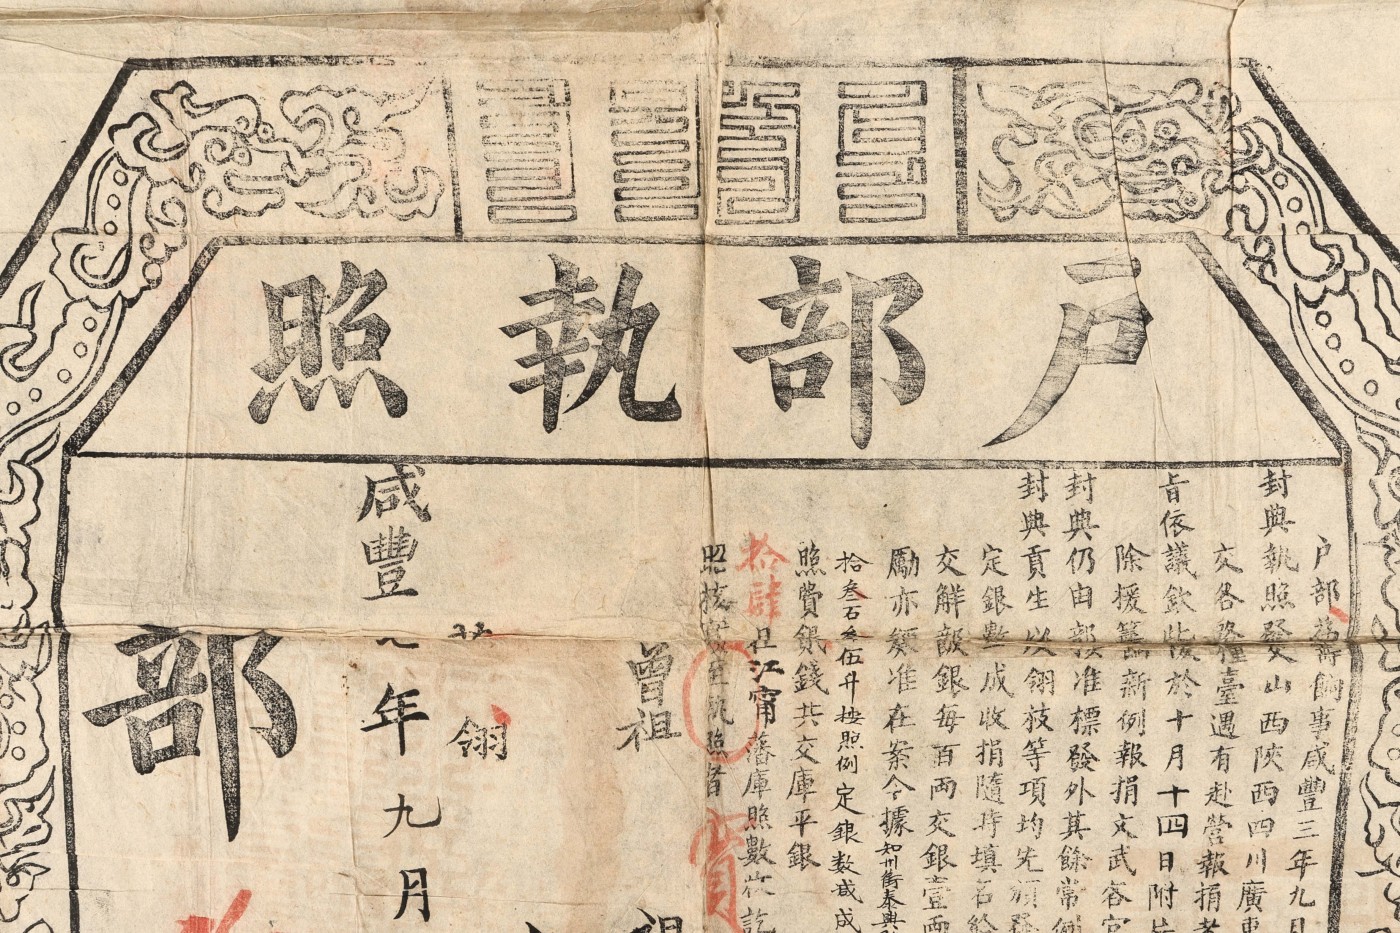 戶部執照
戶部為籌餉事咸豐三年九月
封典執照發交山西陝西四川廣東
交各糧臺遇有赴營報捐者
旨依議欽此復於十月十四日附片
除援籌餉新例報捐文武各官
封典仍由部核准標發外其餘常例
封典貢生以翎枝等項均先頒發
定銀數一成收捐隨時填名給
交解部飯銀每百兩交銀壹兩
勵亦經准在案今據知州銜泰興
拾叁石叁伍升按照例定銀数貳成
照費銀錢共交庫平銀
拾肆 江甯藩庫照數收訖
照核 至執照者
實
曾祖
祖
翎
咸豐 年九月
部